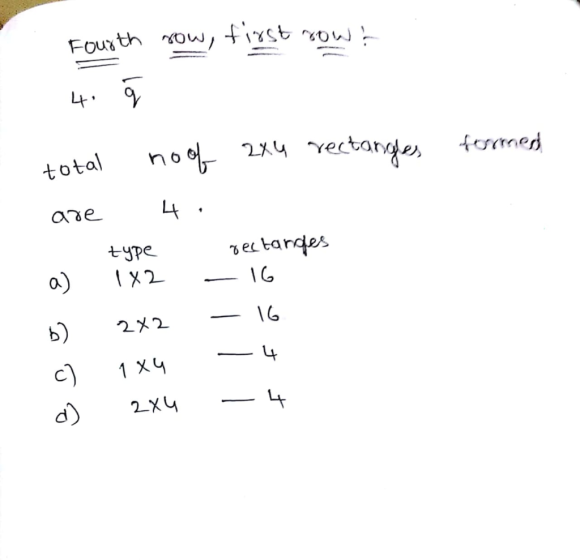 Fourth row, first row:-
4. q̅
total no of 2x4 rectangles formed
are 4.
type rectangles
a) 1x2 — 16
b) 2x2 — 16
c) 1x4 — 4
d) 2x4 — 4